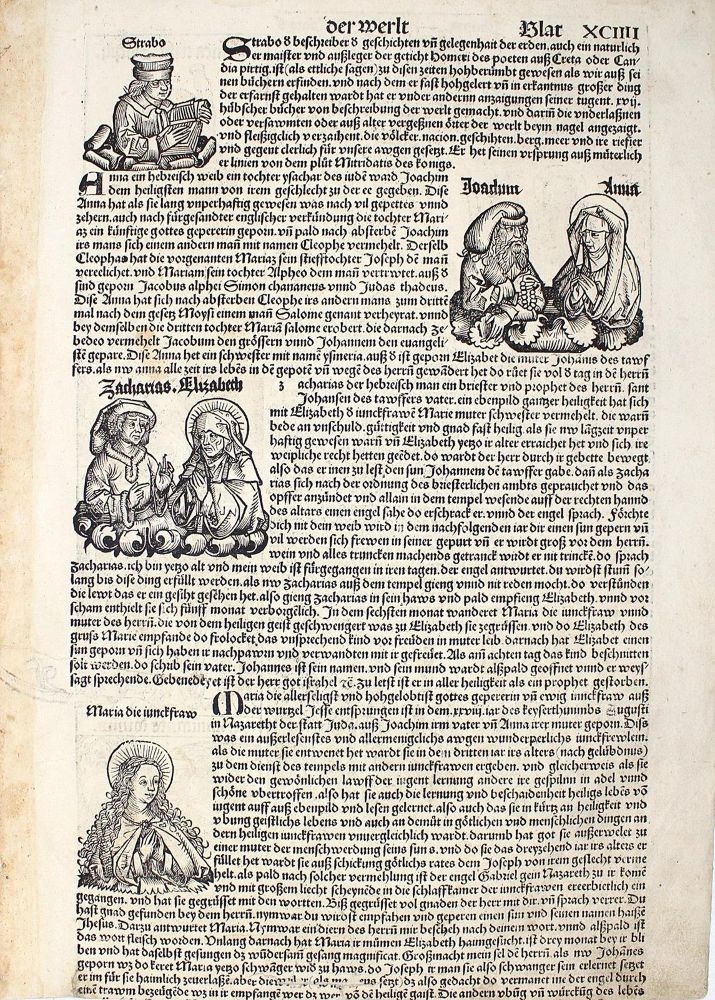 der werlt Blat XCIIII
Strabo
Strabo d̕ beschreiber d̕ geschichten vn̄ gelegenhait der erden. auch ein naturlich
er maister vnd außleger der geticht Homeri des poeten auß Creta oder Can
dia pirtig. ist (als ettliche sagen) zu disen zeiten hohberümbt gewesen als wir auß sei
nen büchern erfinden. vnd nach dem er fast hohgelert vn̄ in erkantnus großer ding
der erfarnst gehalten wardt hat er vnder andernn anzaigungen seiner tugent. xvij.
hübscher bücher von beschreibung der werlt gemacht. vnd darin̄ die vnderlaßnen
oder versawmten oder auß alter vergeßnen ötter der werlt beyn nagel angezaigt.
vnd fleißigclich verzaihent. die völcker. nacion. geschihten. berg. meer vnd ire riefier
vnd gegent clerlich für vnsere awgen gesetzt. Er het seinen vrsprung auß müterlich
er linien von dem plůt Mitridatis des konigs.
Anna ein hebreisch weib ein tochter ysachar des iudē ward Joachim
dem heiligsten mann von irem geschlecht zu der ee gegeben. Dise
Anna hat als sie lang vnperhaftig gewesen was nach vil gepettes vnnd
zehern. auch nach fürgesandter englischer verkündung die tochter Mari-
az ein künftige gottes gepererin geporn. vn̄ pald nach absterbē Joachim
irs mans sich einem andern man̄ mit namen Cleophe vermehelt. Derselb
Cleophas hat die vorgenanten Mariaz sein stiefftochter Joseph dē man̄
vereelichet. vnd Mariam sein tochter Alpheo dem man̄ vertrwtet. auß d̕
sind geporn Jacobus alphei Simon chananeus vnnd Judas thadeus.
Dise Anna hat sich nach absterben Cleophe irs andern mans zum drittē
mal nach dem gesetz Moysi einem man̄ Salome genant verheyrat. vnnd
bey demselben die dritten tochter Mariā salome erobert. die darnach ze-
bedeo vermehelt Jacobum den grössern vnnd Johannem den euangeli
stē gepare. Dise Anna het ein schwester mit namē ysmeria. auß d̕ ist geporn Elizabet die muter Johānis des tawf
fers. als nw anna alle zeit irs lebēs in dē gepotē vn̄ wegē des herrn̄ gewandert het do růet sie vol d̕ tag in dē herrn̄
Joachim Anna
Zacharias. Elizabeth
z acharias der hebreisch man ein briester vnd prophet des herrn̄. sant
Johansen des tawffers vater. ein ebenpild gantzer heiligkeit hat sich
mit Elizabeth d̕ iunckfrawē Marie muter schwester vermehelt. die warn̄
bede an vnschuld. gůttigkeit vnd gnad fast heilig. als sie nw lāgzeit vnper
haftig gewesen warn̄ vn̄ Elizabeth yetzo ir alter erraichet het vnd sich ire
weiplliche recht hetten geēdet. do wardt der herr durch ir gebette bewegt.
also das er inen zu letst den sun Johannem dē tawffer gabe. dan̄ als Zacha
rias sich nach der ordnung des briesterlichen ambts geprauchet vnd das
opffer anzündet vnd allain in dem tempel wesende auff der rechten hannd
des altars einen engel sahe do erschrack er. vnnd der engel sprach. Förchte
dich nit dein weib wird in dem nachfolgenden iar dir einen sun gepern vn̄
vil werden sich frewen in seiner gepurt vn̄ er wirdt groß vor dem herrn̄.
wein vnd alles truncken machends getranck wirdt er nit trinckē. do sprach
Zacharias. ich bin yetzo alt vnd mein weib ist fürgegangen in iren tagen. der engel antwurtet. du wirdst stum̄ so-
lang bis dise ding erfüllt werden. als nw Zacharias auß dem tempel gieng vnnd nit reden mocht. do verstūnden
die lewt das er ein gesiht gesehen het. also gieng Zacharias in sein haws vnd pald empfieng Elizabeth. vnnd vor
scham enthielt sie sich fünff monat verborgēlich. In dem sechsten monat wanderet Maria die iunckfraw vnnd
muter des herrn̄. die von dem heiligen geist geschwengert was zu Elizabeth sie zegrüssen. vnd do Elizabeth des
gruss Marie empfande do frolocket das vnsprechend kind vor freüden in muter leib. darnach hat Elizabet einen
sun geporn vn̄ sich haben ir nachpawrn vnd verwandten mit ir gefreüet. Als am̄ achten tag das kind beschnitten
solt werden. do schrib sein vater. Johannes ist sein namen. vnd sein mund wardt alßpald geoffnet vnnd er weys-
sagt sprechende. Gebenedeyet ist der herr got israhel ꝛc̄. Zu letst ist er in aller heiligkeit als ein prophet gestorben.
Maria die iunckfraw
Maria die allerseligst vnd hohgelobtist gottes gepererin vn̄ ewig iunckfraw auß
der wurtzel Jesse entsprungen ist in dem. xxvij. iar des keyserthumbs Augusti
in Nazareth der statt Juda. auß Joachim irm vater vn̄ Anna irer muter geporn. Diss
was ein außerlesenstes vnd allermenigclichs awgen wunderperlichs iunckfrewlein.
als die muter sie entwenet het wardt sie in dem dritten iar irs alters (nach gelübdnus)
zu dem dienst des tempels mit andern iunckfrawen ergeben. vnd gleicherweis als sie
wider den gewönlichen lawff der iugent lernung andere ire gespiln̄ in adel vnnd
schöne vbertroffen. also hat sie auch die lernung vnd beschaidenheit heiligs lebēs vō
iugent auff auß ebenpild vnd lesen gelernet. also auch das sie in kürtz an heiligkeit vnd
vbung geistlichs lebens vnd auch an demůt in götlichen vnd menschlichen dingen an
dern heiligen iunckfrawen vnuergleichlich wardt. darumb hat got sie außerwelet zu
einer muter der menschwerdung seins sun s. vnd do sie das dreyzehend iar irs alters er
füllet het wardt sie auß schickung götlichs rates dem Joseph von irem geslecht verme
helt. als pald nach solcher vermehlung ist der engel Gabriel gein Nazareth zu ir komē
vnd mit großem liecht scheynēde in die schlaffkamer der iunckfrawen ereerbietlich ein
gegangen. vnd hat sie gegrüsset mit den wortten. Biß gegrüsset vol gnaden der herr mit dir. vn̄ sprach verrer. Du
hast gnad gefunden bey dem herrn̄. nymwar du wirdst empfahen vnd geperen einen sun vnd seinen namen haißē
Jhesus. Darzu antwurtet Maria. Nymwar ein diern des herrn̄ mir bescheh nach deinem wort. vnnd alßpald ist
das wort fleisch worden. Vnlang darnach hat Maria ir můmen Elizabeth haimgesucht. ist drey monat bey ir bli
ben vnd hat daselbst gesungen dz wūdersam̄ gesang magnificat. Großmacht mein sel dē herrn̄. als nw Johānes
geporn wz do keret Maria yetzo schwanger wid̕ zu haws. do Joseph ir man sie also schwanger sein erlernet setzet